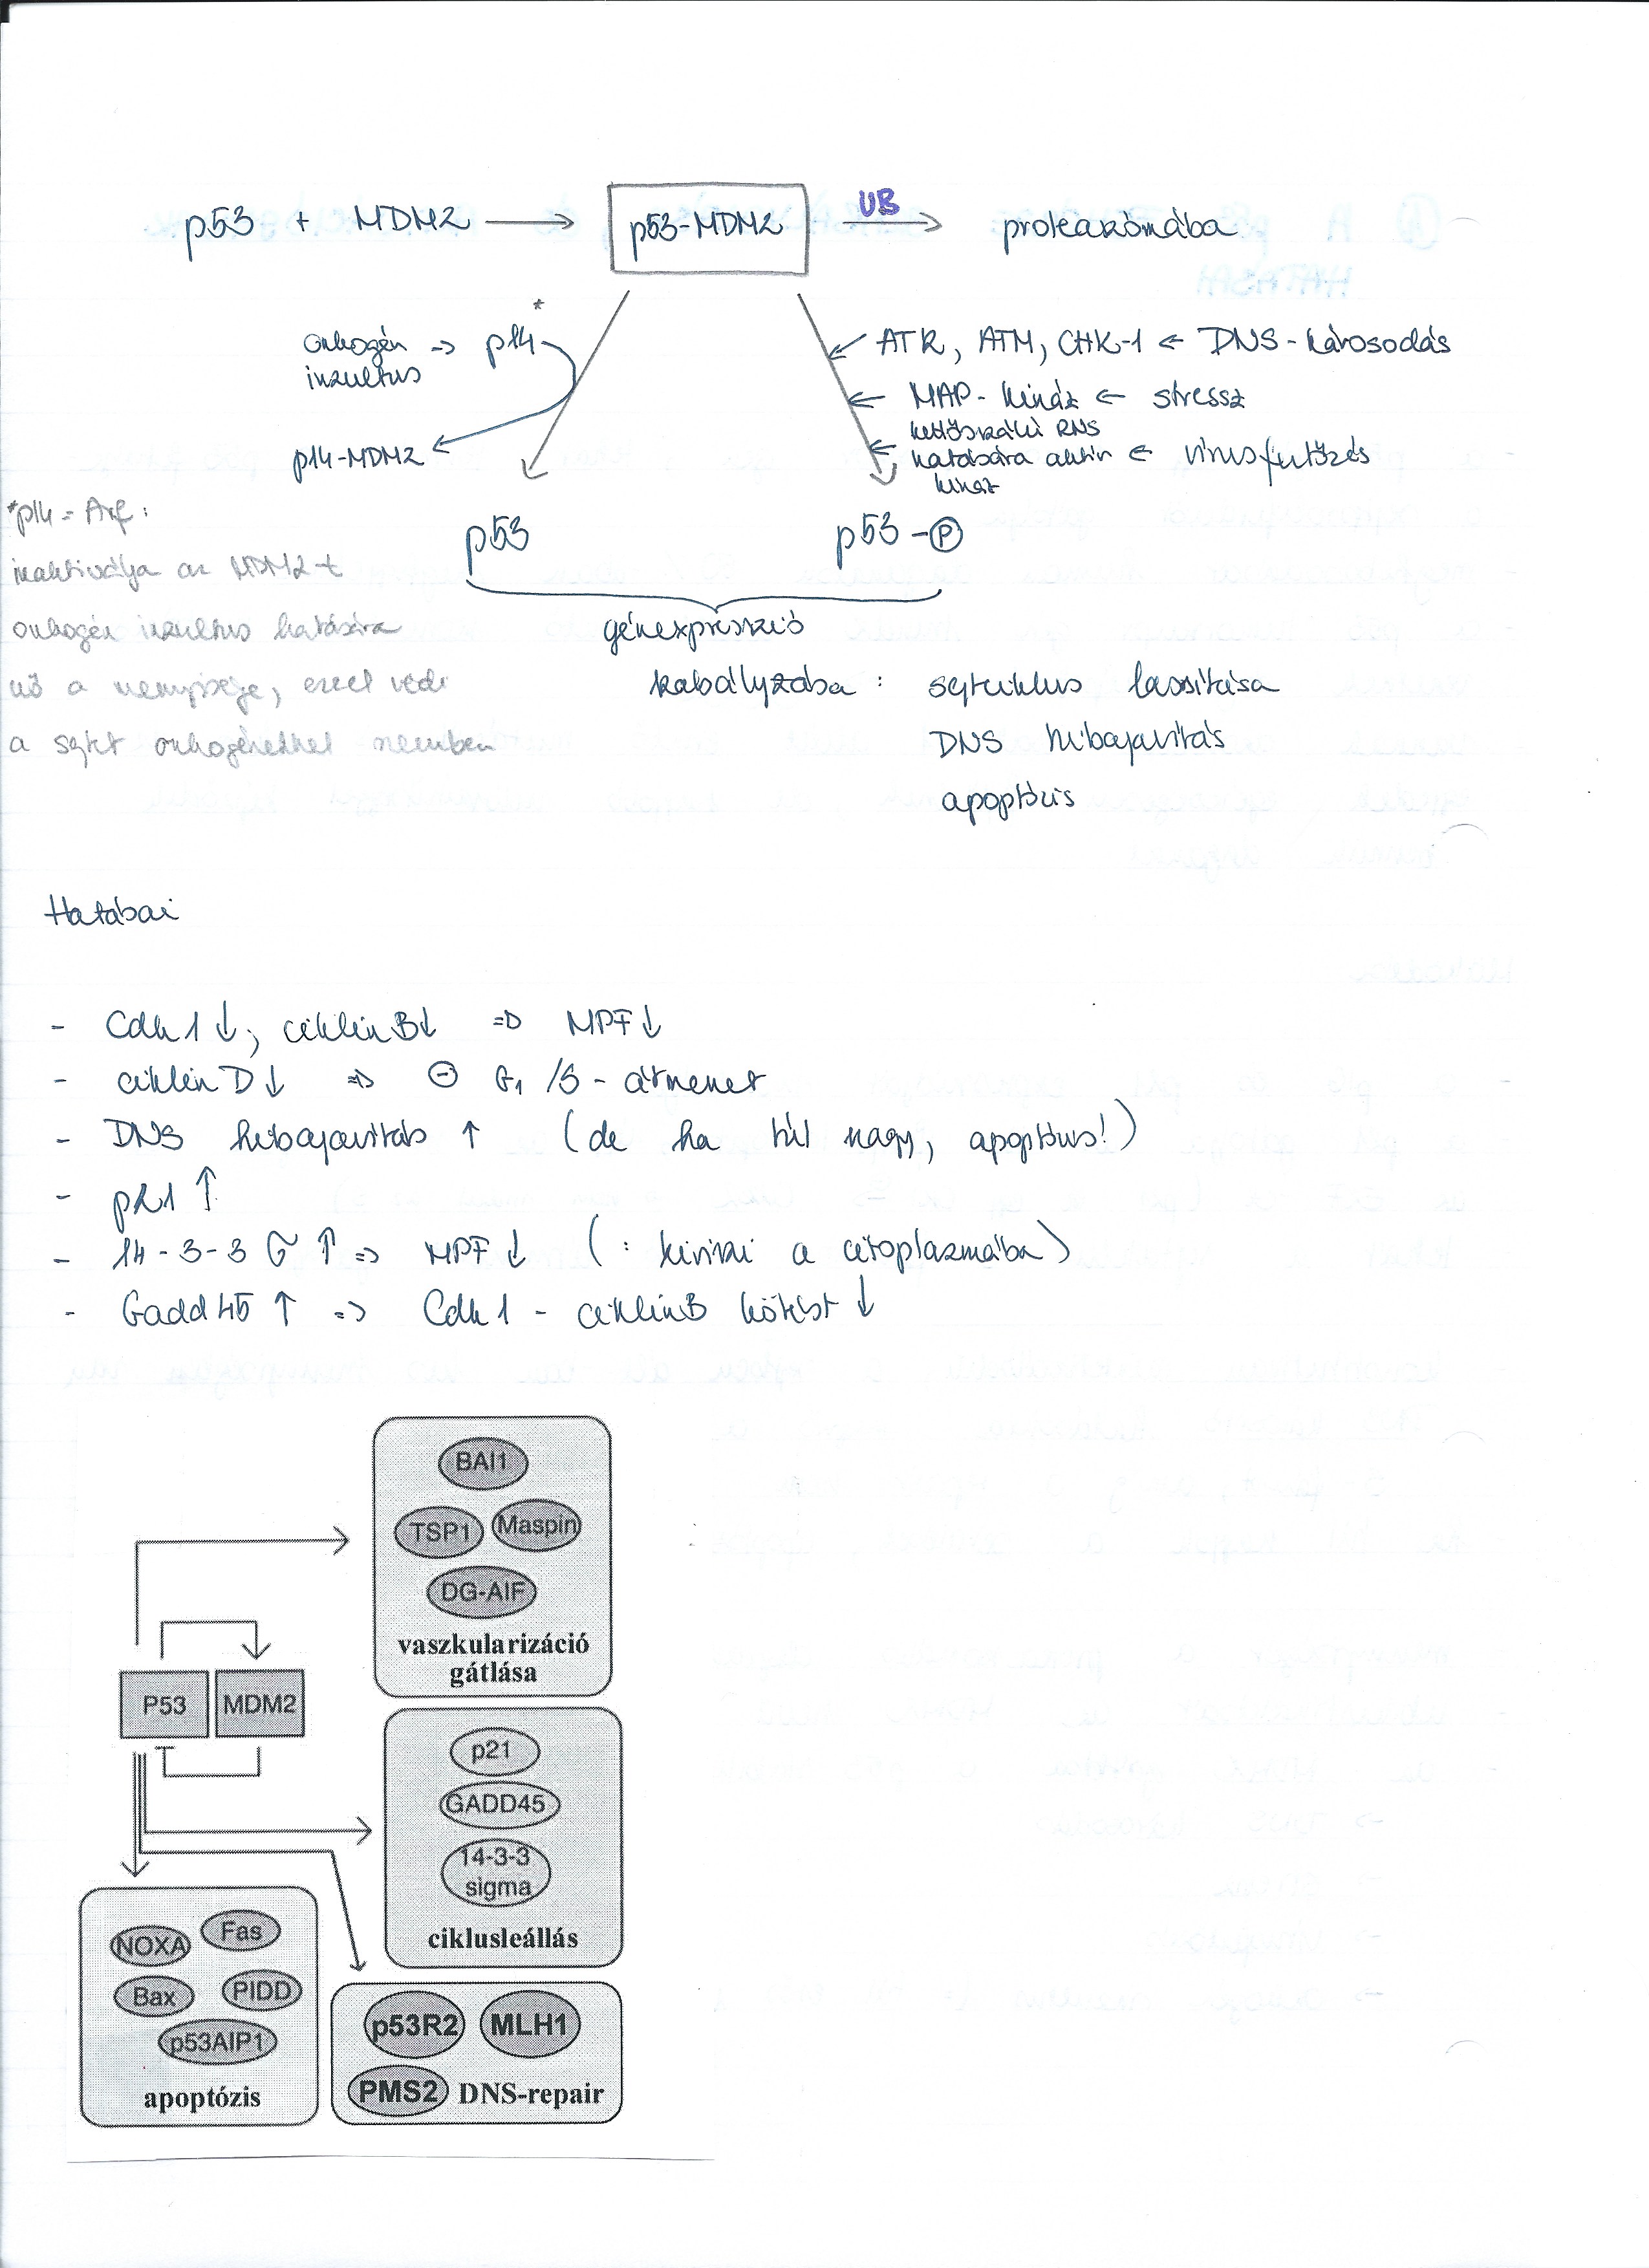 p53 + MDM2 → p53-MDM2 UB → proteaszómába
onkogén → p14*
inzultus
p14-MDM2
ATR, ATM, CHK-1 ← DNS-károsodás
MAP-kináz ← stressz
kettősszálú RNS
hatására aktív ← vírusfertőzés
kináz
*p14 = Arf:
inaktiválja az MDM2-t
onkogén inzultus hatására
nő a mennyisége, ezzel védi
a sejtet onkogénekkel szemben
p53 p53-Ⓟ
génexpresszió
szabályzása : sejtciklus lassítása
DNS hibajavítás
apoptózis
Hatásai
- Cdk1↓, ciklin B↓ ⇒ MPF↓
- ciklin D↓ ⇒ ⊖ G1/S-átmenet
- DNS hibajavítás ↑ (de ha túl nagy, apoptózis!)
- p21 ↑
- 14-3-3 σ ↑ ⇒ MPF ↓ (: kiviszi a citoplazmába)
- Gadd45 ↑ ⇒ Cdk1 - ciklinB kötést ↓
BAI1
TSP1 Maspin
DG-AIF
vaszkularizáció
gátlása
P53 MDM2
p21
GADD45
14-3-3
sigma
ciklusleállás
NOXA Fas
Bax PIDD
p53AIP1
apoptózis
p53R2 MLH1
PMS2 DNS-repair